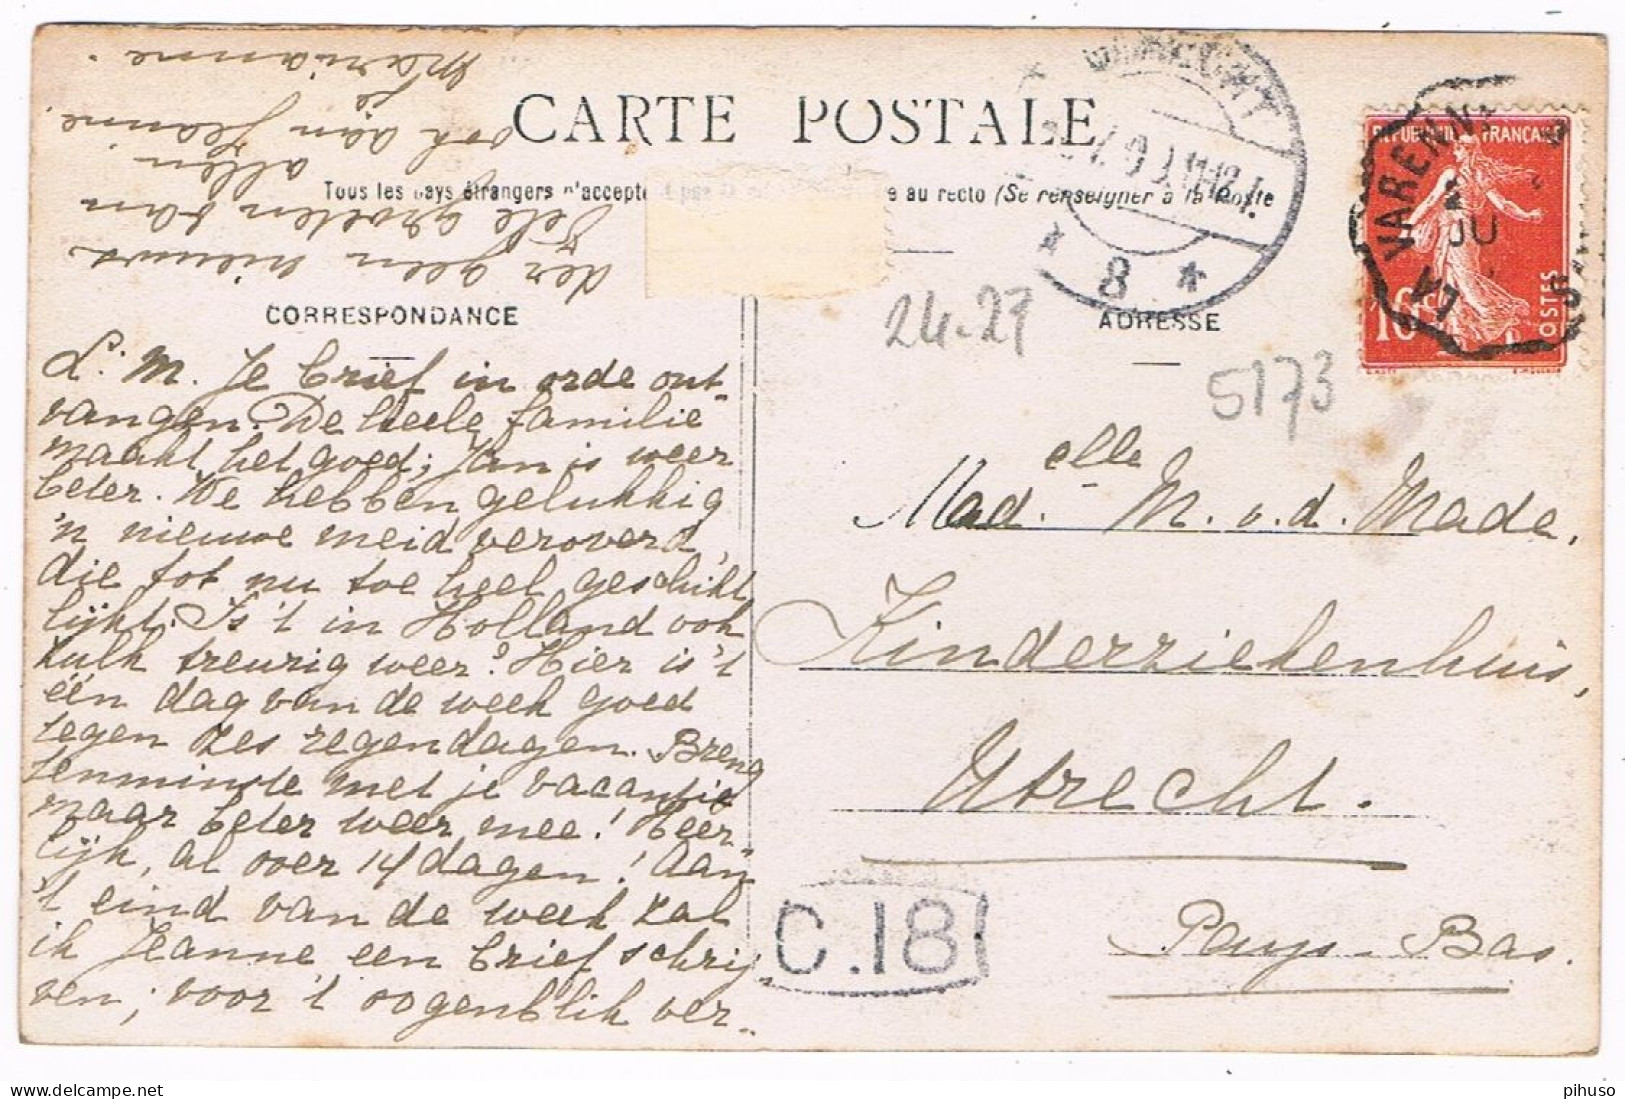 CARTE POSTALE
Tous les pays étrangers n'accepte au recto (Se renseigner à la Poste
CORRESPONDANCE
ADRESSE
L. M. Je brief in orde ont-
vangen. De heele familie
maakt het goed; Jan is weer
beter. We hebben gelukkig
'n nieuwe meid veroverd,
die tot nu toe heel geschikt
lijkt. Is 't in Holland ook
zulk treurig weer? Hier is 't
één dag van de week goed
tegen zes regendagen. Breng
tenminste met je vacantie
maar beter weer mee! Heer-
lijk, al over 14 dagen! Aan
't eind van de week zal
ik Jeanne een brief schrij-
ven; voor 't oogenblik ver-
der geen nieuws
Vele groeten van
allen
ook aan Jeanne.
je
Marianne.
24-27
5173
Madelle M. v. d. Made,
Kinderziekenhuis,
Utrecht.
Pays-Bas.
C.18
UTRECHT
8
VARENN
REPUBLIQUE FRANÇAISE
10c
POSTES
pihuso